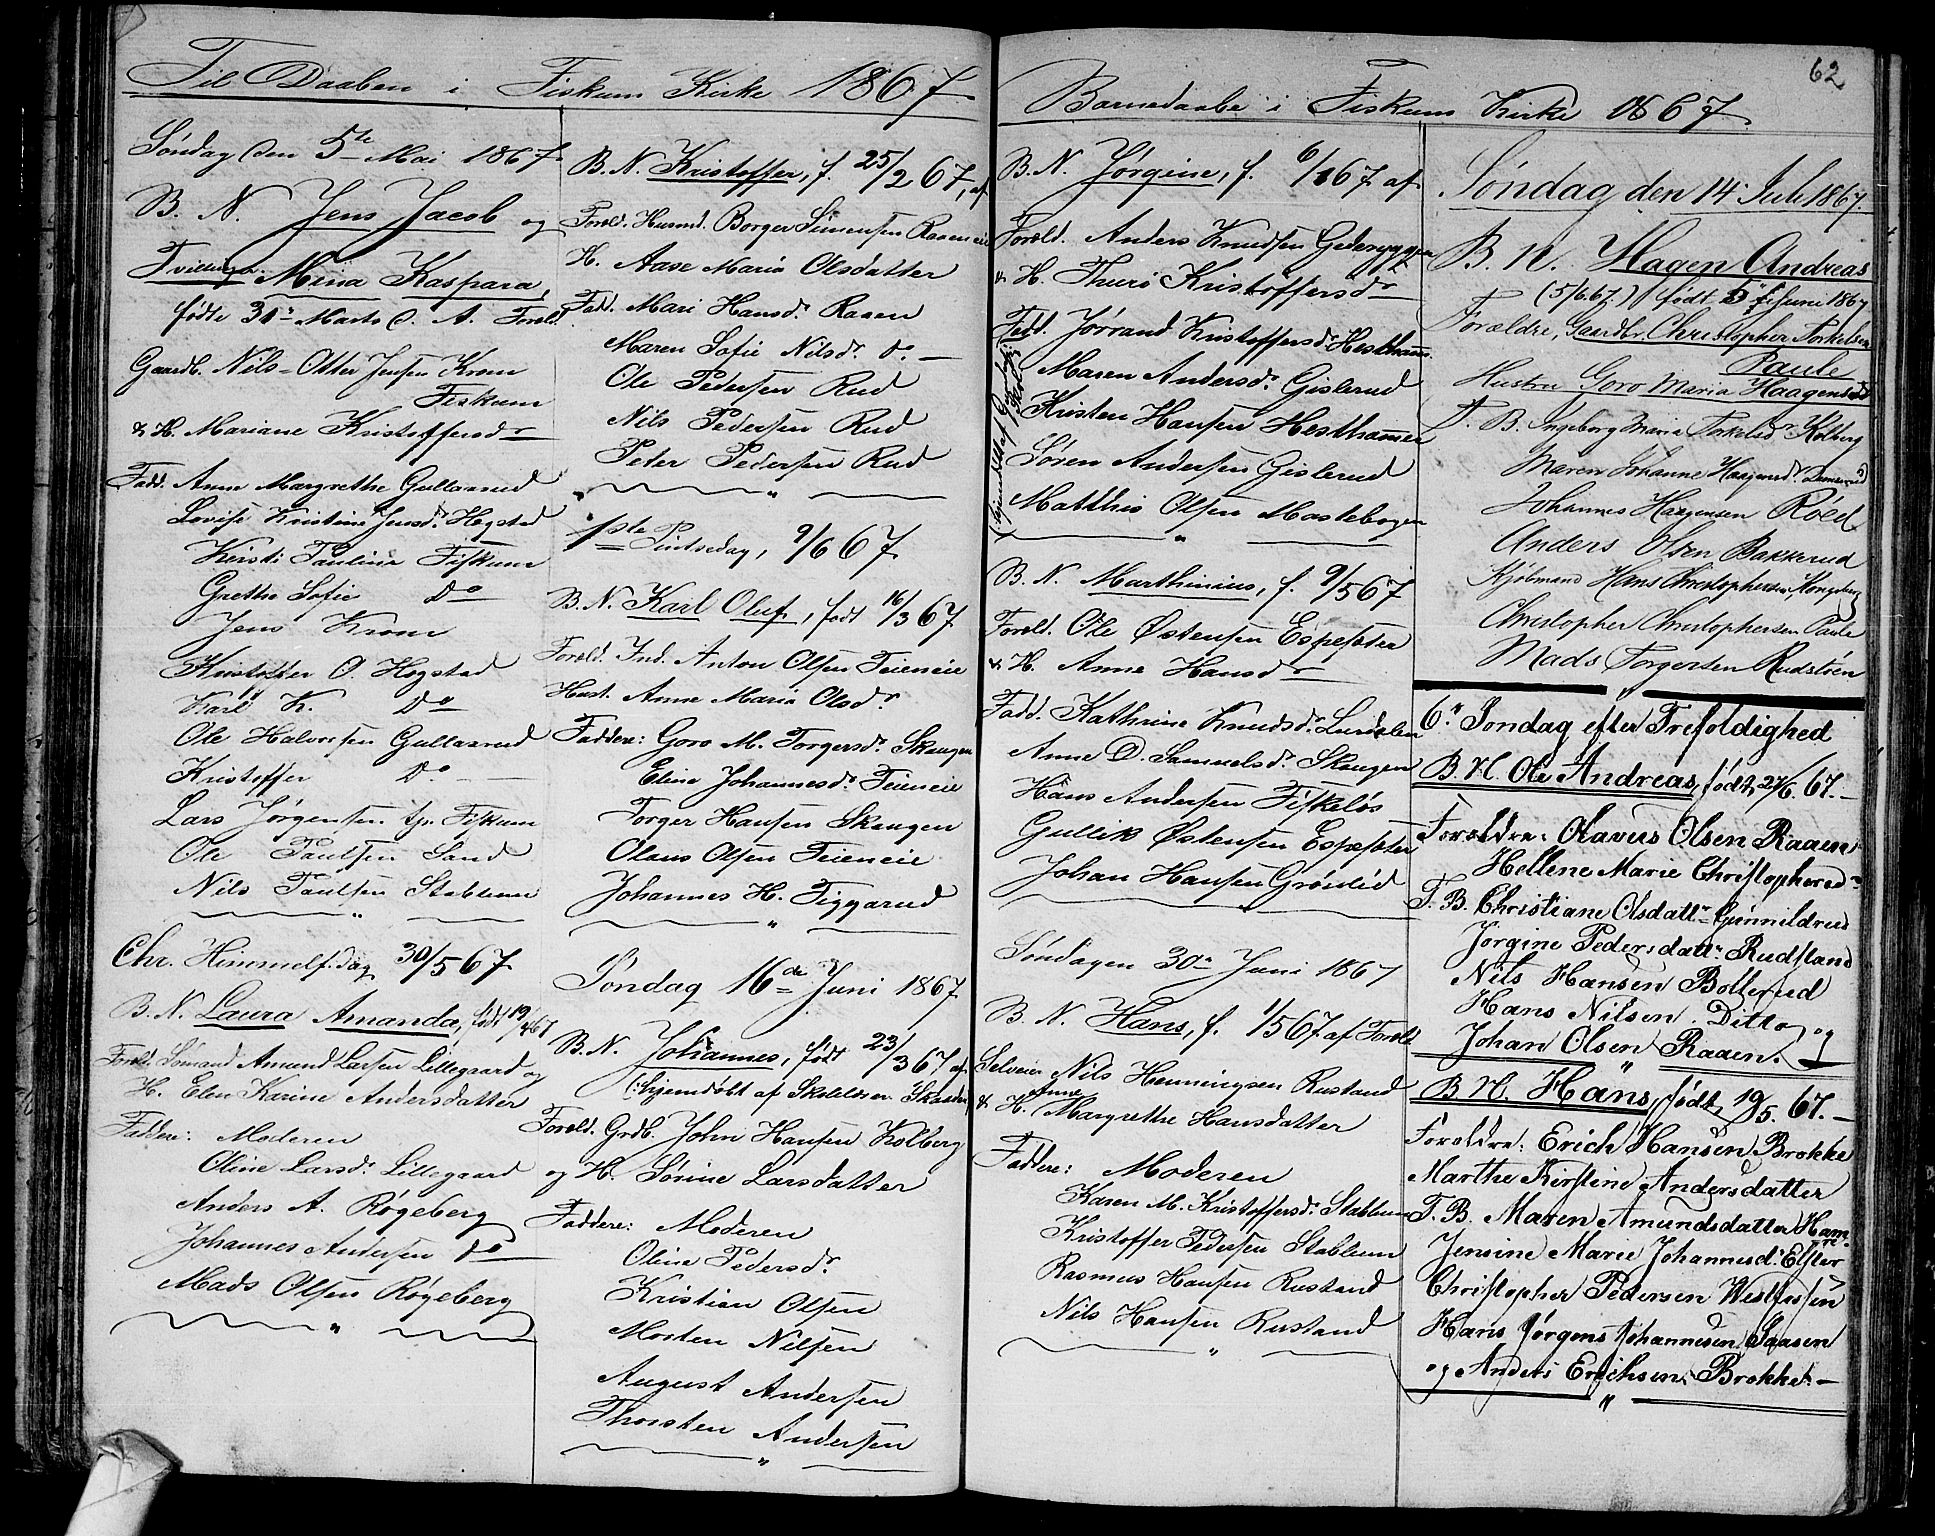 Til Daaben i Fiskum Kirke 1867.
Søndag den 5te Mai 1867.
B. N. Jens Jacob og
Tvillinger Mina Kaspara,
fødte 31te Marts d. A. Foreld.
Gaardb. Nils-Otter Jensen Krom
Fiskum
& H. Mariane Kristoffersdr
Fadd. Anne Margrethe Gullaarud
Lovise Kristine Jensdr Hogstad
Kersti Pauline Fiskum
Grethe Sofie Do
Jens Krom
Kristoffer O. Hogstad
Karl K. Do
Ole Halvorsen Gullaarud
Kristoffer Do
Lars Jørgensen tj. Fiskum
Ole Paulsen Sand
Nils Paulsen Stablum
Chr. Himmelf.dag 30/5 67.
B. N. Laura Amanda, født 19/4 67
Foreld. Sømand Amund Larsen Lillegaard og
H. Elen Karine Andersdatter
Faddere: Moderen
Oline Larsdr Lillegaard
Anders A. Røgeberg
Johannes Andersen Do
Mads Olsen Røgeberg
B. N. Kristoffer, f. 25/2 67, af
Foreld. Husmd. Borger Simensen Raaeneie
H. Aase Maria Olsdatter
Fadd. Mari Hansdr Raaen
Maren Sofie Nilsdr Do
Ole Pedersen Rud
Nils Pedersen Rud
Peter Pedersen Rud
1ste Pintsedag, 9/6 67.
B. N. Karl Oluf, født 16/3 67.
Foreld. Ind. Anton Olsen Teieneie
Hust. Anne Maria Olsdr
Faddere: Goro M. Torgersdr Skaugen
Eline Johannesdr Teieneie
Torger Hansen Skaugen
Olaus Olsen Teieneie
Johannes H. Tiggarud
Søndag 16de Juni 1867.
B. N. Johannes, født 23/3 67 af
(hjemdøbt af Skolelærer
Foreld. Grdb. John Hansen Kolberg
og H. Sørine Larsdatter
Faddere: Moderen
Oline Pedersdr
Kristian Olsen
Morten Nilsen
August Andersen
Thorsten Andersen
62
Barnedaabe i Fiskum Kirke 1867.
B. N. Jørgine, f. 6/1 67 af
Foreld. Anders Knudsen Gederyggen
& H. Thuri Kristoffersdr
Fadd. Jørrand Kristoffersdr Hesthamm.
Maren Andersdr Gislerud
Kristen Hansen Hesthammer
Søren Andersen Gislerud
Matthis Olsen Mastebogen
B. N. Marthinius, f. 9/5 67
Foreld. Ole Østensen Espeseter
& H. Anne Hansdr
Fadd. Kathrine Knudsdr Lurdalen
Anne D. Samuelsdr Skaugen
Hans Andersen Fiskeløs
Gullik Østensen Espeseter
Johan Hansen Grøslid
Søndagen 30te Juni 1867
B. N. Hans, f. 1/5 67 af Foreld
Selveier Nils Henningsen Rustand
& H. Anne Margrethe Hansdatter
Faddere: Moderen
Karen M. Kristoffersdr Stablum
Kristoffer Pedersen Stablum
Rasmus Hansen Rustand
Nils Hansen Rustand
Søndag den 14 Juli 1867.
B. N. Hagen Andreas
(5/6.67.) født 5te Juni 1867
Forældre, Gaardbr. Christopher Torkelsen
Paule
Hustru Goro Maria Haagensd
F. B. Ingeborg Maria Torkelsdr Kolberg
Maren Johanne Haagensdr
Johannes Haagensen Røed
Anders Olsen Bakkerud
Kjøbmand Hans Christophersen, Kongsberg
Christopher Christophersen Paule
Mads Torgersen Rudstøen
6te Søndag efter Trefoldighed
B. N. Ole Andreas, født 27/6. 67.-
Forældre: Olavus Olsen Raaen
Hellene Marie Christophersdr
F. B. Christiane Olsdattr Gunnildrud
Jørgine Pedersdattr Rudstand
Nils Hansen Bollerud
Hans Nilsen Ditto og
Johan Olsen Raaen.
B. N. Hans, født 19/5. 67.-
Forældre: Erich Hansen Brokke
Marthe Kirstine Andersdatter
F. B. Maren Amundsdatter Ham̅re
Jensine Marie Johannesd. Elster
Christopher Pedersen Westfossen
Hans Jørgens Johannesen Saasen
og Anders Erichsen Brokke.-